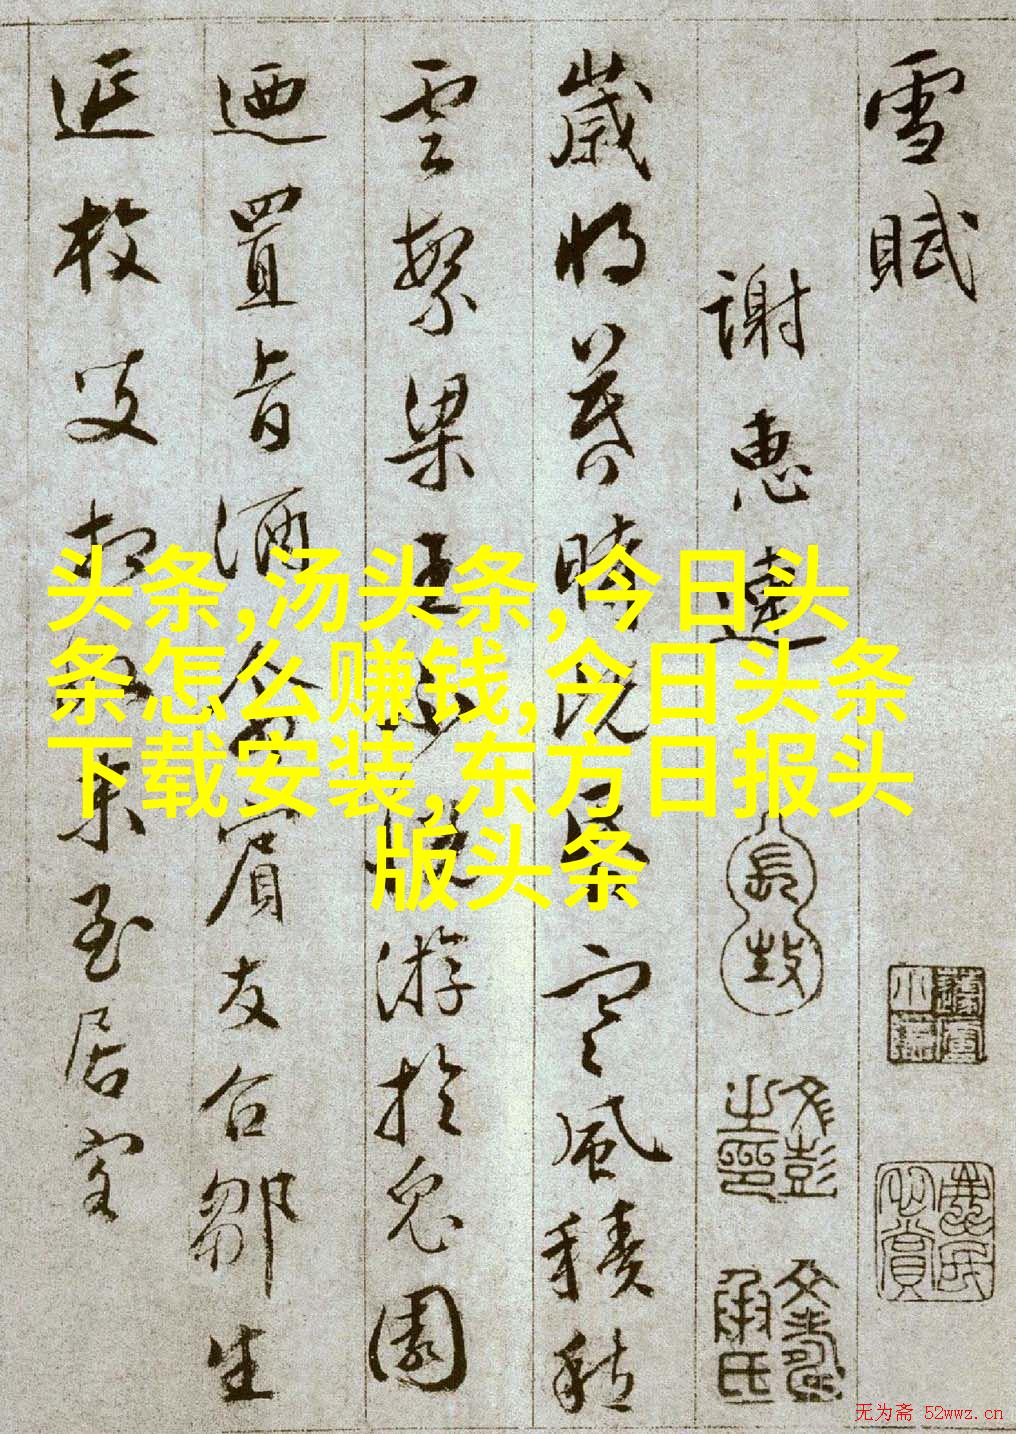 雪賦
謝惠連
歲将暮時既昏寒風積愁
雲繁梁王不悅遊於兔園
迺置旨酒命賓友召鄒生
延枚叟相如末至居客
文彭之印
文壽承氏
头条,汤头条,今日头
条怎么赚钱,今日头条
下载安装,东方日报头
版头条
无为斋 52wwz.cn